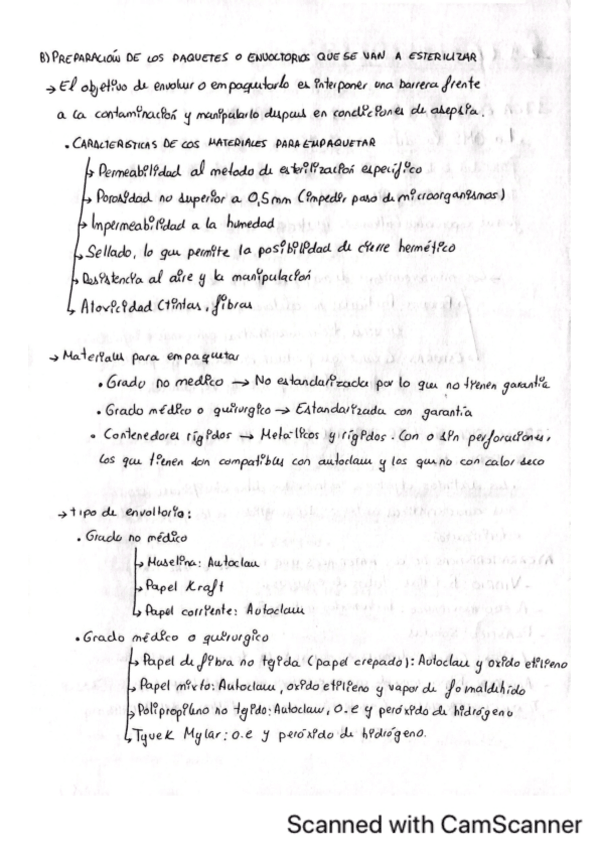 B) PREPARACIÓN DE LOS PAQUETES O ENVOLTORIOS QUE SE VAN A ESTERILIZAR
→ El objetivo de envolver o empaquetarlo es interponer una barrera frente
a la contaminación y manipularlo despues en condiciones de asepsia.
• CARACTERISTICAS DE LOS MATERIALES PARA EMPAQUETAR
↳ Permeabilidad al metodo de esterilización especifico
↳ Porosidad no superior a 0,5mm (impedir paso de microorganismos)
↳ Impermeabilidad a la humedad
↳ Sellado, lo que permite la posibilidad de cierre hermético
↳ Resistencia al aire y la manipulación
↳ Atoxicidad (tintas, fibras
→ Materiales para empaquetar
• Grado no medico → No estandarizada por lo que no tienen garantía
• Grado médico o quirurgico → Estandarizada con garantía
• Contenedores rígidos → Metálicos y rígidos. Con o sin perforaciones,
los que tienen son compatibles con autoclave y los que no con calor seco
→ tipo de envoltorio:
• Grado no médico
↳ Muselina: Autoclave
↳ Papel Kraft
↳ Papel corriente: Autoclave
• Grado médico o quirurgico
↳ Papel de fibra no tejida (papel crepado): Autoclave y oxido etileno
↳ Papel mixto: Autoclave, oxido etileno y vapor de formaldehido
↳ Polipropileno no tejido: Autoclave, O.e y peróxido de hidrógeno
↳ Tyvek Mylar: o.e y peróxido de hidrógeno.
Scanned with CamScanner